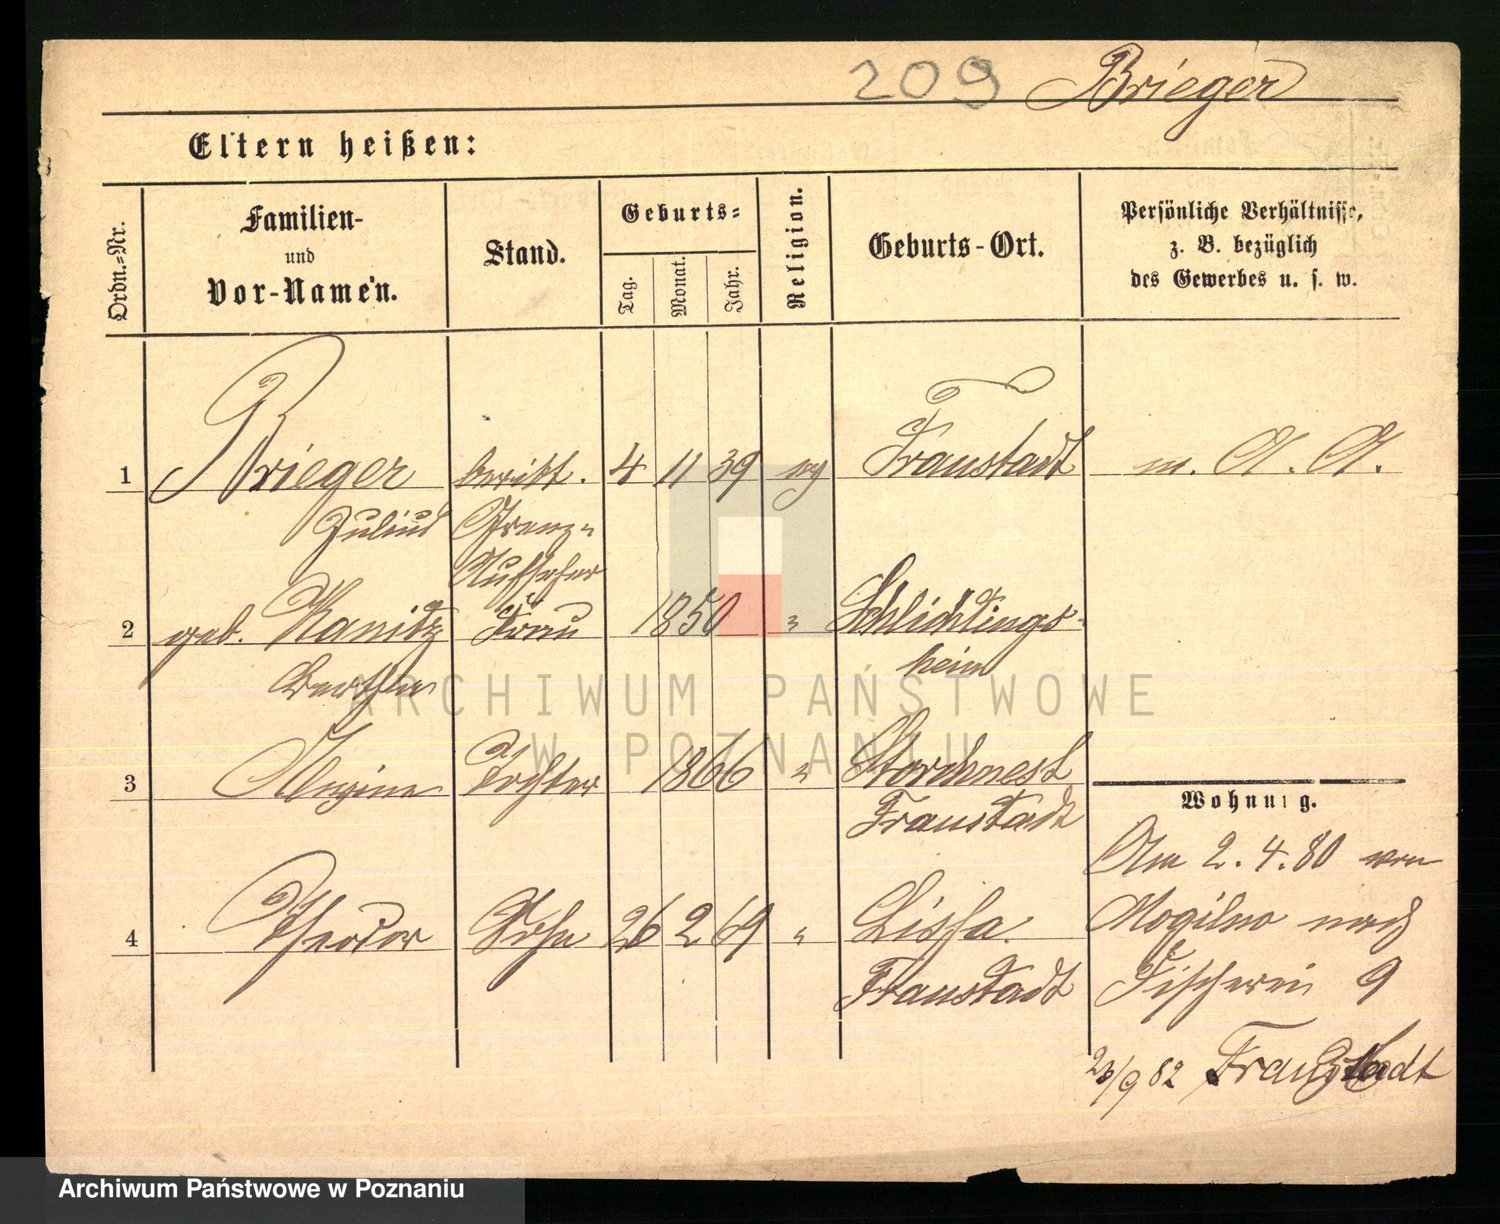 209 Brieger
Eltern heißen:
Ordn.-Nr.
Familien-
und
Vor-Namen.
Stand.
Geburts-
Tag.
Monat.
Jahr.
Religion.
Geburts-Ort.
Persönliche Verhältnisse,
z. B. bezüglich
des Gewerbes u. s. w.
1 Brieger beritt. 4 11 39 ev Fraustadt m. A. A.
Julius Grenz-
Aufseher
2 geb. Kanitz Frau 1850 " Schlichtings-
Bertha heim
3 Tochter 1866 " Storchnest
Fraustadt
Wohnung.
Am 2.4.80 von
4 Theodor Sohn 26 2 69 " Lissa
Mogilno nach
Fraustadt
Fischerei 9
23/9 82 Fraustadt
ARCHIWUM PAŃSTWOWE
W POZNANIU
Archiwum Państwowe w Poznaniu